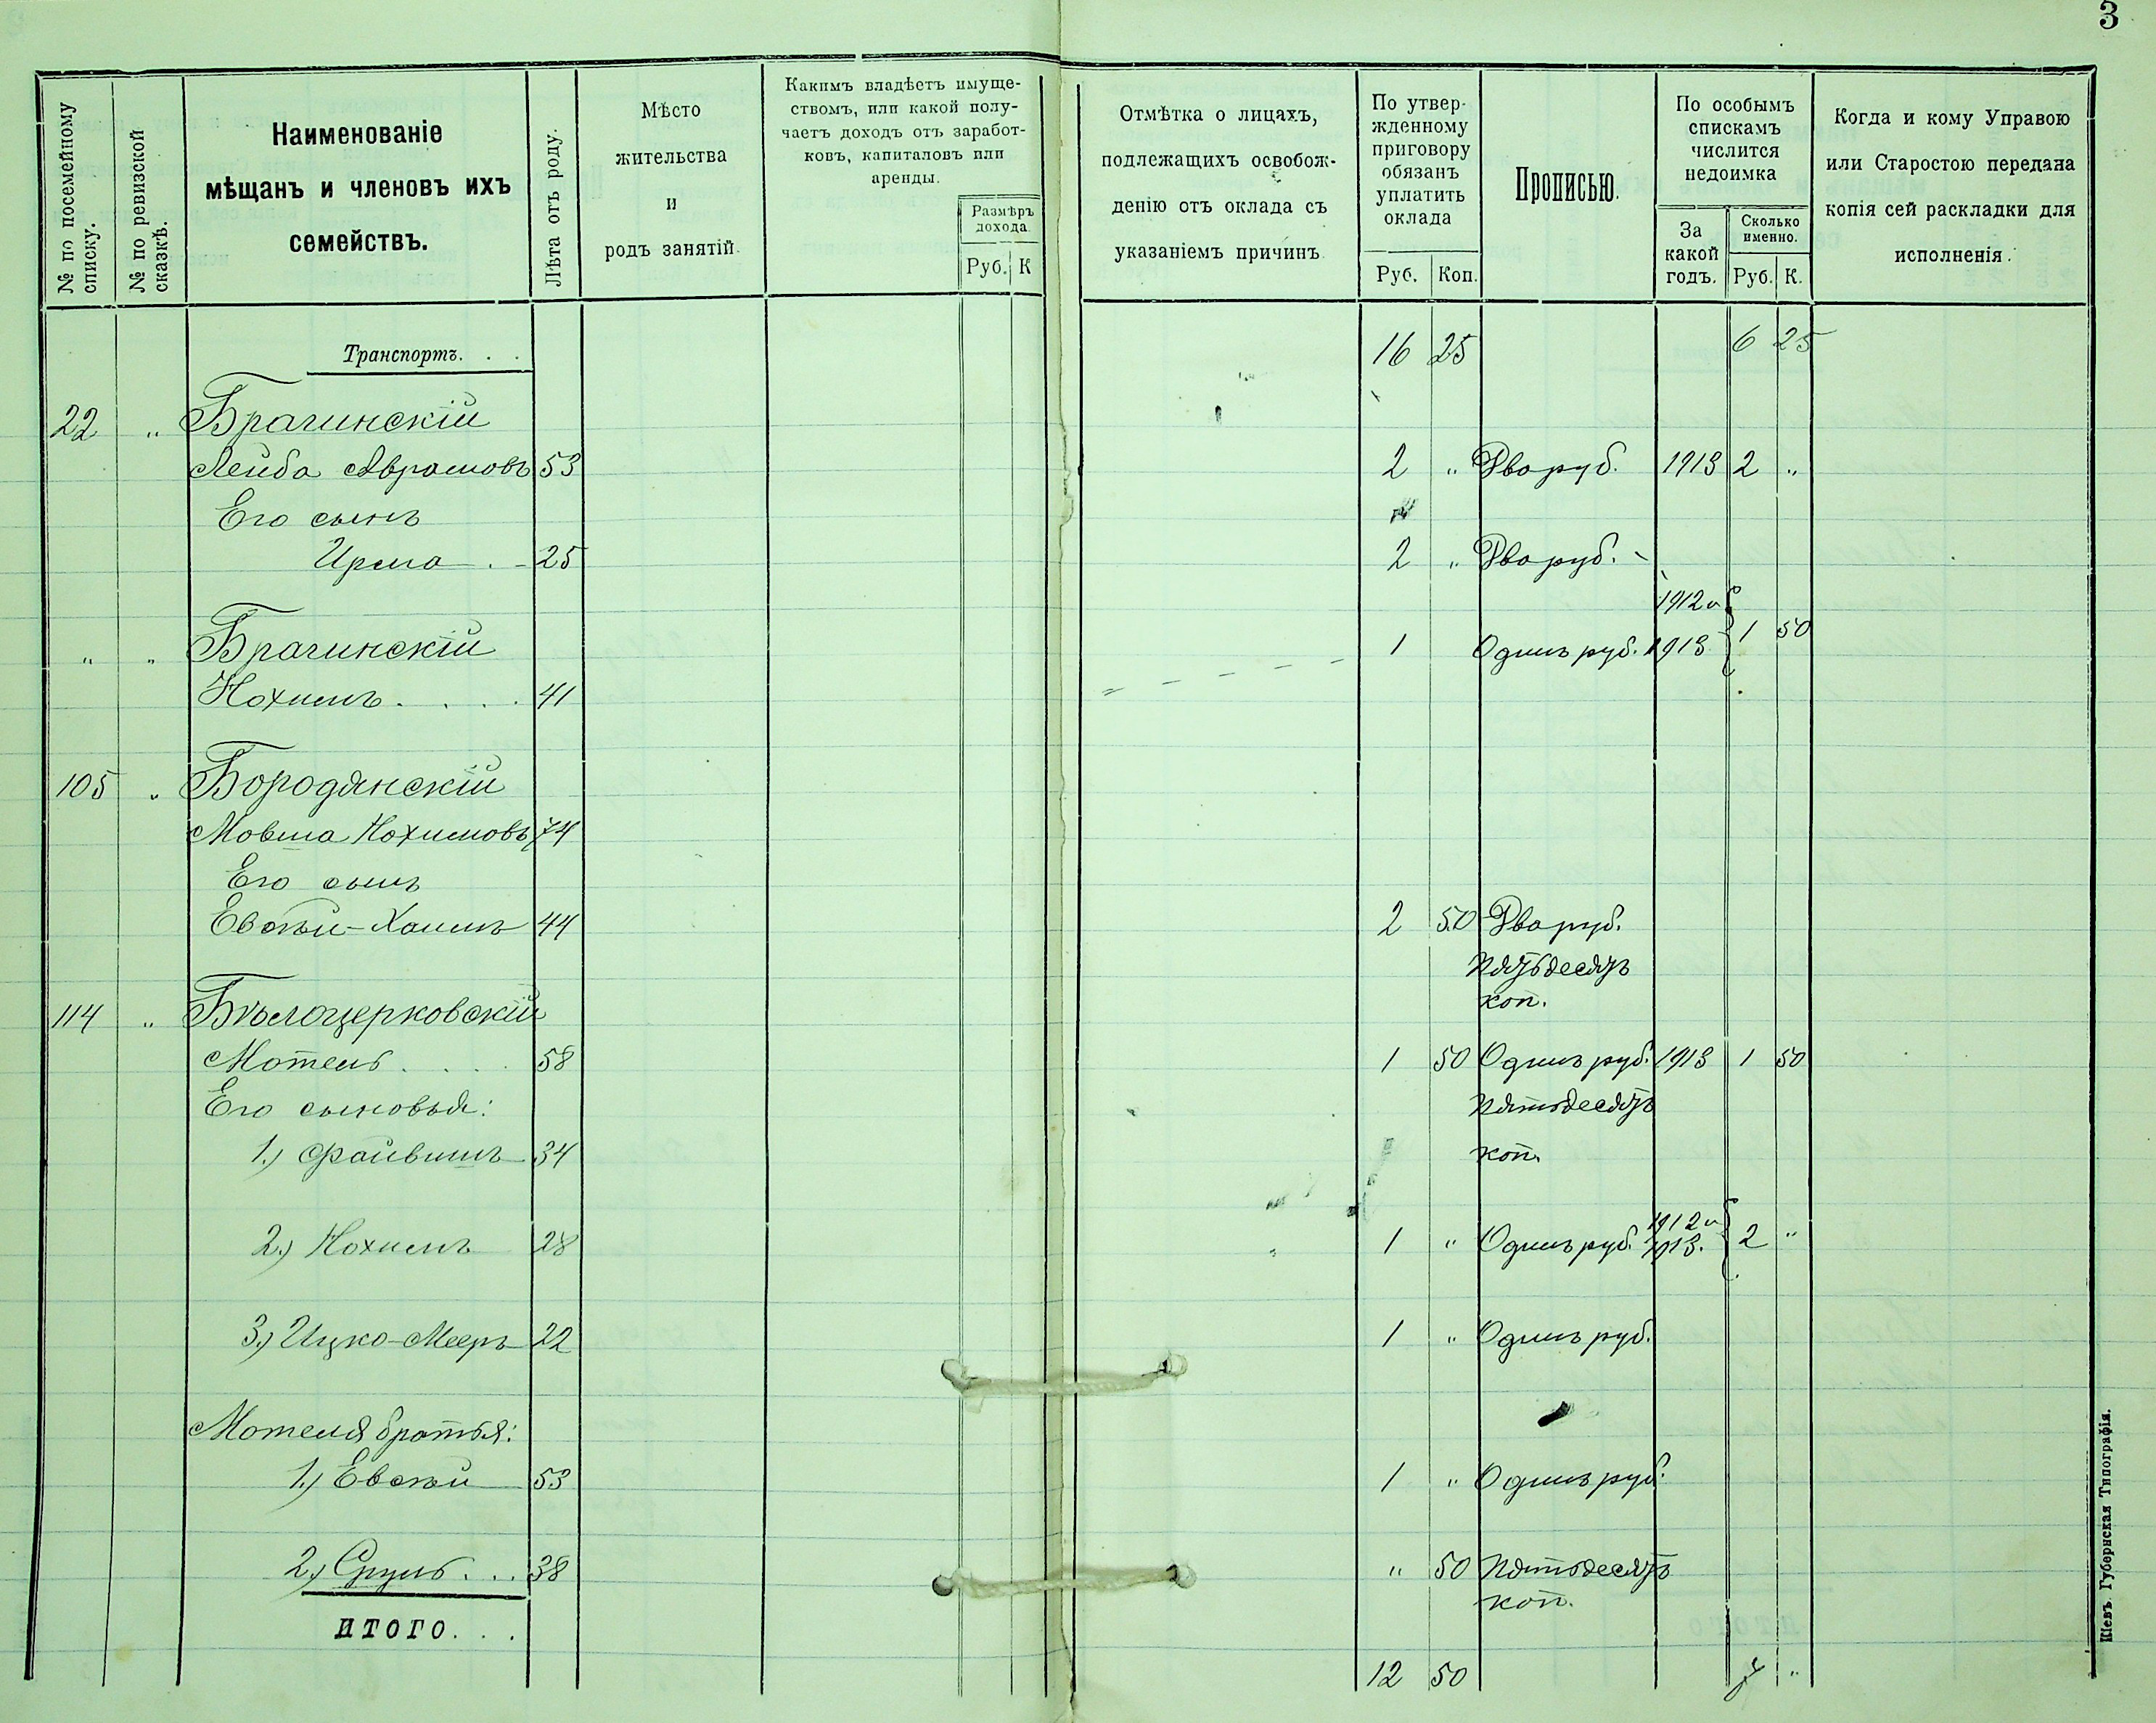 3
№ по посемейному списку.
№ по ревизской сказкѣ.
Наименованіе
мѣщанъ и членовъ ихъ
семействъ.
Лѣта отъ роду.
Мѣсто
жительства
и
родъ занятій.
Какимъ владѣетъ имуще-
ствомъ, или какой полу-
чаетъ доходъ отъ заработ-
ковъ, капиталовъ или
аренды.
Размѣръ
дохода.
Руб. К
Отмѣтка о лицахъ,
подлежащихъ освобож-
денію отъ оклада съ
указаніемъ причинъ.
По утвер-
жденному
приговору
обязанъ
уплатить
оклада
Руб. Коп.
Прописью.
По особымъ
спискамъ
числится
недоимка
За
какой
годъ.
Сколько
именно.
Руб. К.
Когда и кому Управою
или Старостою передана
копія сей раскладки для
исполненія.
Транспортъ. . . 16 25 6 25
22 „ Брагинскій
Лейба Аврамовъ 53 2 „ Два руб. 1913 2 „
Его сынъ
Ирма . 25 2 „ Два руб.
1912 и
„ „ Брагинскій 1 Одинъ руб. 1913 1 50
Нохимъ . . . . 41
105 „ Бородянскій
Мовша Нохимовъ 74
Его сынъ
Евсѣй-Хаимъ 44 2 50 Два руб.
пятьдесятъ
коп.
114 „ Бѣлоцерковскій
Мотель . . . . 58 1 50 Одинъ руб. 1913 1 50
Его сыновья: пятьдесятъ
1.) Файвишъ 34 коп.
1912 и
2.) Нохимъ 28 1 „ Одинъ руб. 1913. 2 „
3.) Ицко-Мееръ 22 1 „ Одинъ руб.
Мотеля братья:
1.) Евсѣй 53 1 „ Одинъ руб.
2.) Сруль . . . 38 „ 50 пятьдесятъ
коп.
ИТОГО. . .
12 50 7 „
Кіевъ. Губернская Типографія.